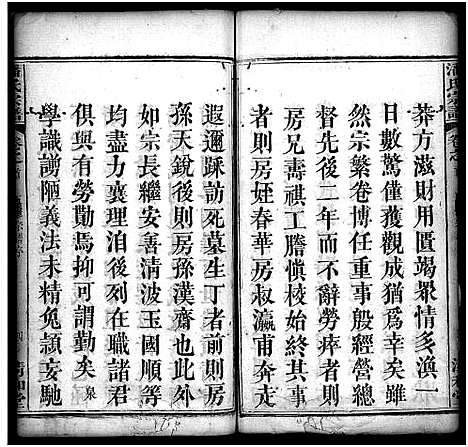 莽方滋財用匱竭眾情多滇一
日數驚僅獲觀成猶爲幸矣雖
然宗繁卷博任事般般經營總
督先後二年而云勞瘁者則
房兄壽祺工謄愼校始終其事
者房姪春華房叔瀛甫奔走
遐邇踩訪死墓生丁者前則房
孫天銳後則房孫漢齋也此外
如宗長繼安善清波玉國順等
均盡力襄理洎後列在職諸君
俱與有勞勩焉抑可謂勤矣泉
學識謭陋義法未精兔頴妄馳
潘氏宗譜